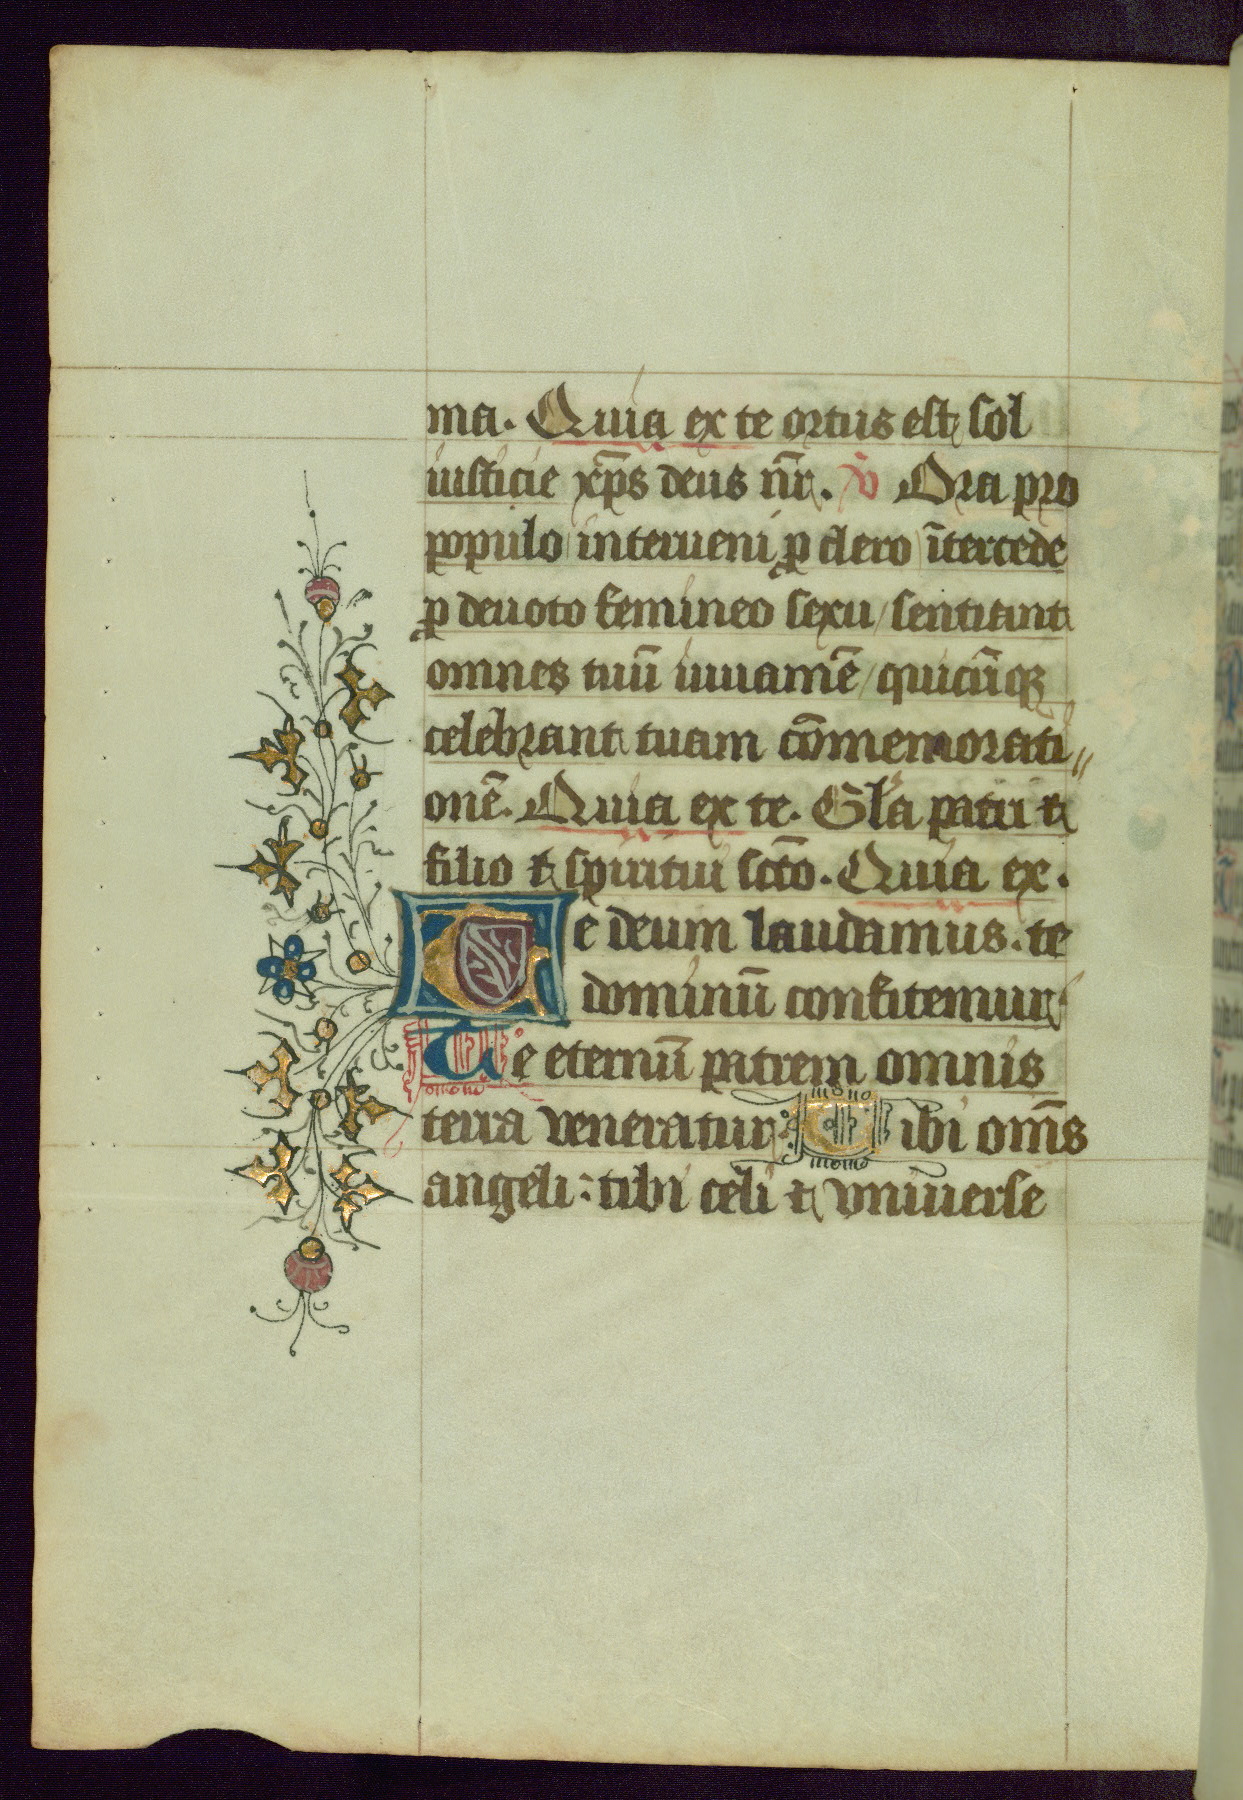 ma. Quia ex te ortus est sol
iusticie xp̄s deus nr̄. ℣ Ora pro
populo interueni ꝓ clero ītercede
ꝓ deuoto femineo sexu / sentiant
omnes tuū iuuamē / quicūqꝫ
celebrant tuam cōmemorati〃
onē. Quia ex te. Gl'a patri ⁊
filio ⁊ spiritui sct̄o. Quia ex.
Te deum laudamus. te
dominū confitemur
Te eternū patrem omnis
terra veneratur Tibi om̄s
angeli : tibi celi ⁊ vniuerse